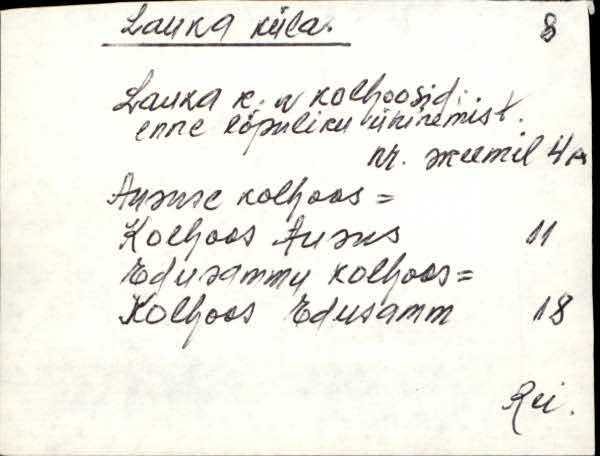 Lauka küla. 8
Lauka k. kolhoosid
enne lõpuliku ühinemist.
nr. skeemil 4
Aususe kolhoos =
Kolhoos Ausus 11
Edusammu kolhoos =
Kolhoos Edusamm 18
Rei.